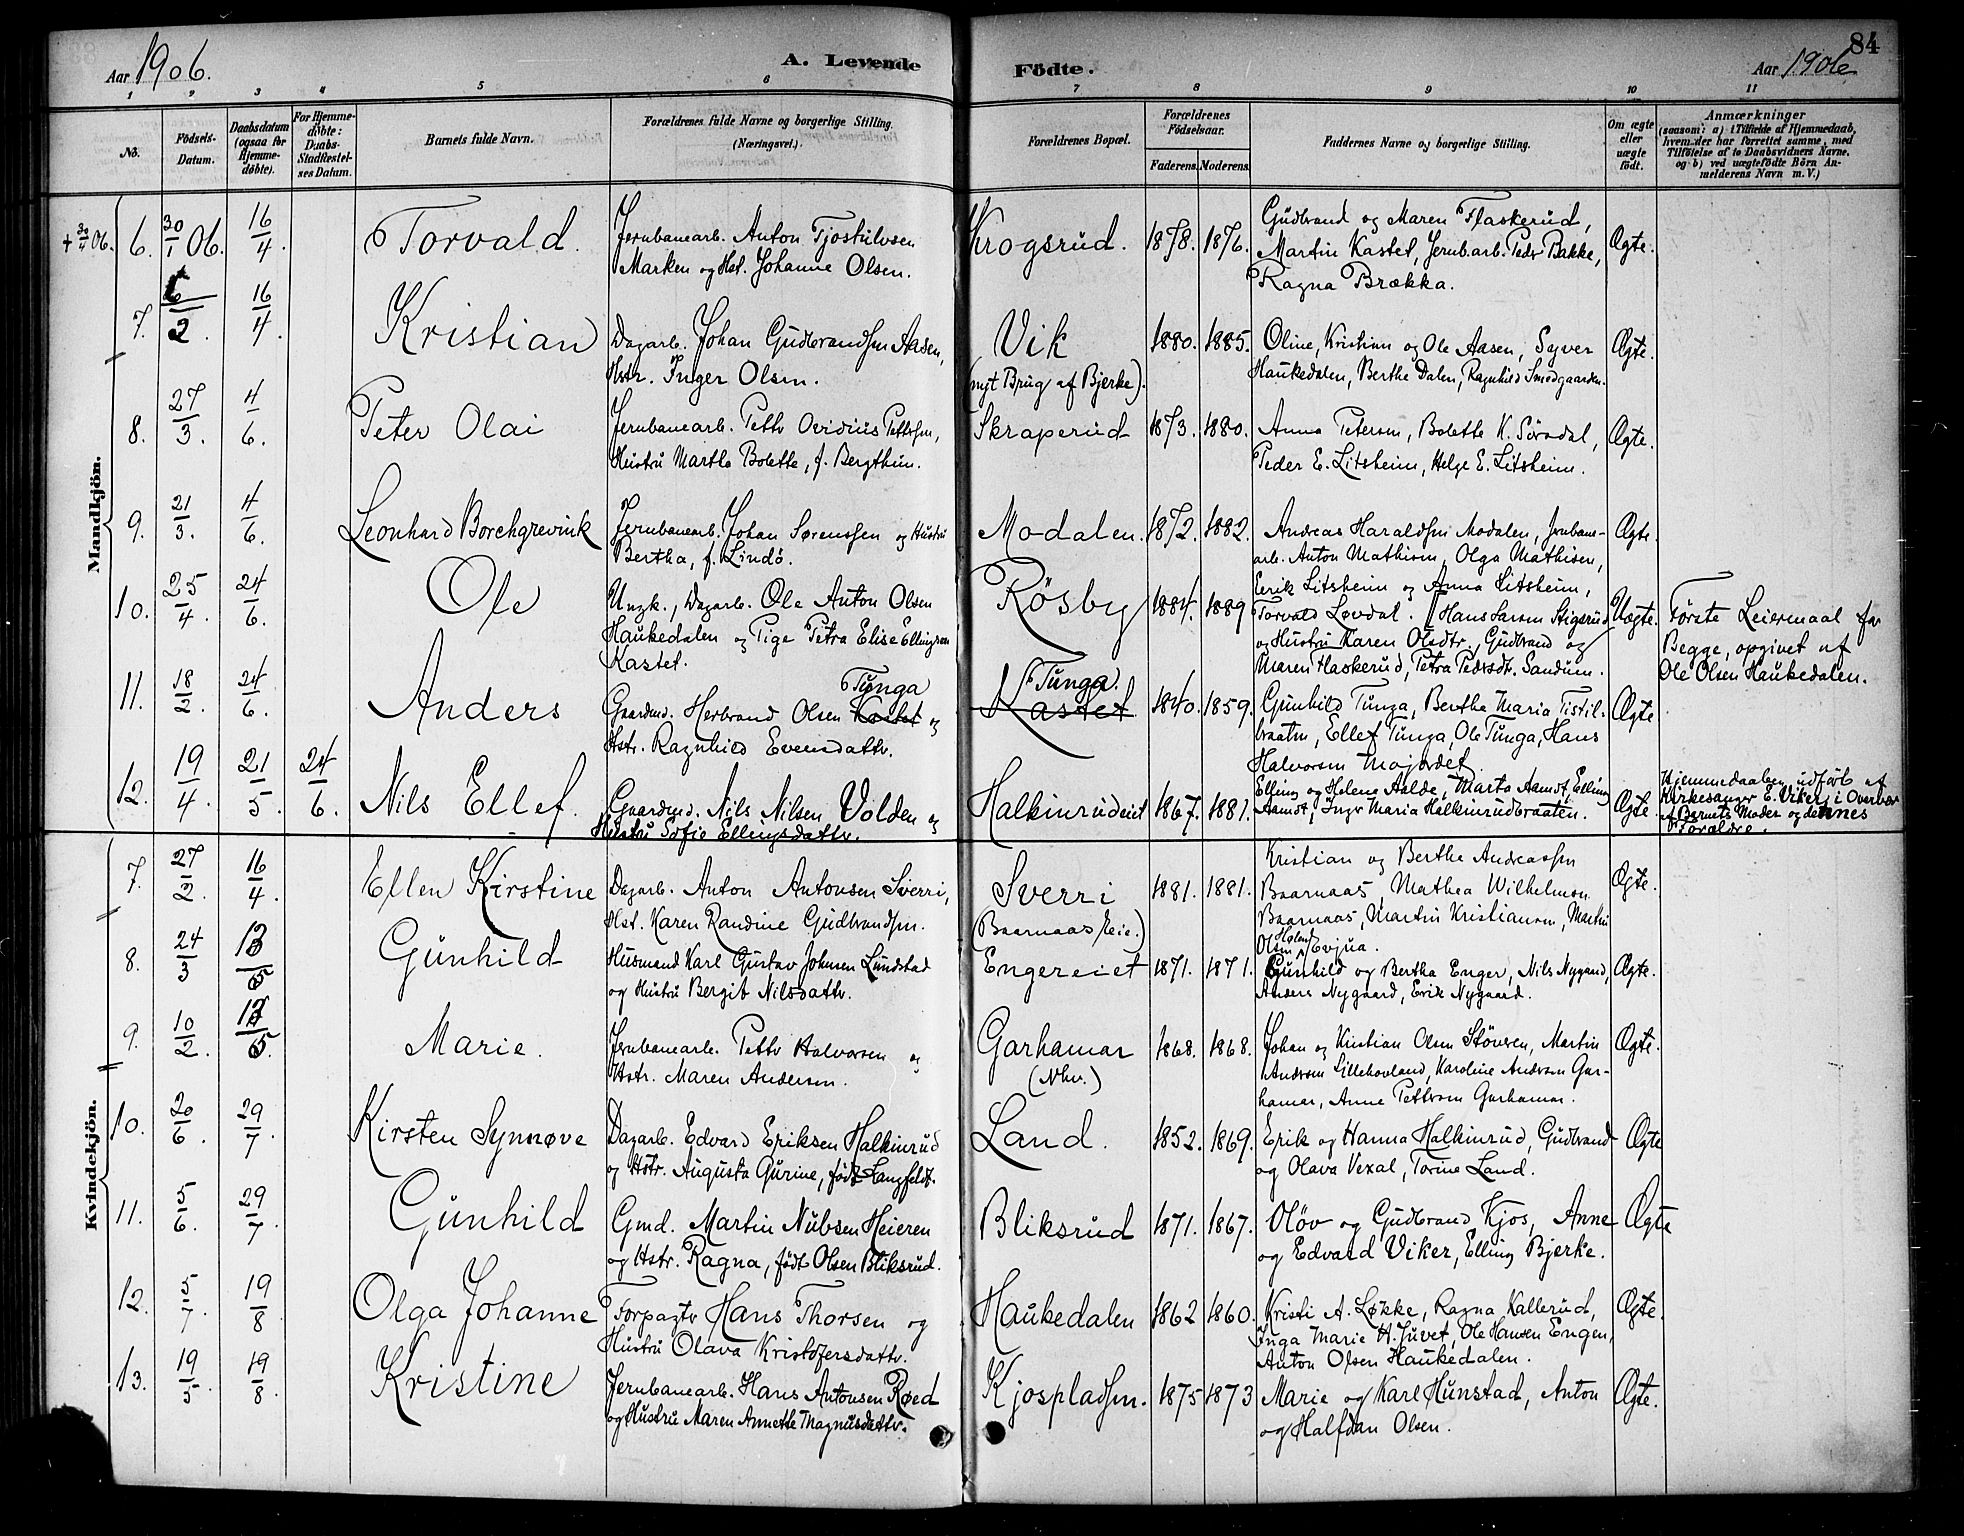 Aar 1906.
A. Levende
Födte.
Aar 1906
84
1 2 3 4 5 6 7 8 9 10 11
No.
Födsels-
Datum.
Daabsdatum
(ogsaa for
Hjemme-
döbte).
For Hjemme-
döbte:
Daabs-
Stadfæstel-
ses Datum.
Barnets fulde Navn.
Forældrenes fulde Navne og borgerlige Stilling.
(Næringsvei.)
Forældrenes Bopæl.
Forældrenes
Födselsaar.
Faderens. Moderens.
Faddernes Navne og borgerlige Stilling.
Om ægte
eller
uægte
födt.
Anmærkninger
(saasom: a) i Tilfælde af Hjemmedaab,
hvem der har forrettet samme, med
Tilföielse af to Daabsvidners Navne,
og b) ved uægtefödte Börn An-
melderens Navn m. V.)
Mandkjön.
+ 30/4 06. 6. 30/1 06. 16/4. Torvald. Jernbanearb. Anton Tjostulvsen
Marken og Hst. Johanne Olsen.
Krogsrud. 1878. 1876. Gudbrand og Maren Flaskerud,
Martin Kastet, Jernb.arb. Peder Bakke,
Ragna Brækka.
Ægte.
7. 6/2. 16/4. Kristian Dagarb. Johan Gudbrandsen Aasen,
Hstr. Inger Olsen.
Vik
(nyt Brug af Bjerke).
1880. 1885. Oline, Kristian og Ole Aasen, Syver
Haukedalen, Berthe Dalen, Ragnhild Smedgaarden.
Ægte.
8. 27/3. 4/6. Peter Olai Jernbanearb. Petter Ovidius Pettersen,
Hustru Marthe Bolette, f. Bergthun.
Skraperud 1873. 1880. Anna Petersen, Bolette K. Sørødal,
Peder E. Litsheim, Helge E. Litsheim.
Ægte.
9. 21/3. 4/6. Leonhard Borchgrevink Jernbanearb. Johan Sørenssen og Hustru
Bertha, f. Lindö.
Modalen. 1872. 1882. Andreas Haraldsen Modalen, Jernbane-
arb. Anton Mathisen, Olga Mathisen,
Erik Litsheim og Anna Litsheim,
Torvald Løvdal.
Ægte.
10. 25/4. 24/6. Ole Ungk., Dagarb. Ole Anton Olsen
Haukedalen og Pige Petra Elise Ellingsen
Kastet.
Rösby 1884. 1889 Hans Larsen Stigsrud
og Hustru Karen Olsdtr., Gudbrand og
Maren Flaskerud, Petra Pedersdtr. Sandum.
Uægte. Første Leiermaal for
Begge, opgivet af
Ole Olsen Haukedalen.
11. 18/2. 24/6. Anders Gaardmd. Herbrand Olsen Kastet Tunga og
Hstr. Ragnhild Evensdattr.
Kastet Tunga. 1840. 1859. Gunhild Tunga, Berthe Maria Tistil-
braaten, Ellef Tunga, Ole Tunga, Hans
Halvorsen Mojordet.
Ægte
12. 19/4. 21/5. 24/6. Nils Ellef. Gaardmd. Nils Nilsen Volden og
Hustru Sofie Ellingsdattr.
Halkinrudeiet 1867. 1881. Elling og Helene Aalde, Marta Aamodt, Elling
Aamodt, Inger Maria Halkinrudbraaten.
Ægte. Hjemmedaaben udført af
Kirkesanger E. Viker i Overvær
af Barnets Moder og dennes
Forældre.
Kvindekjön.
7. 27/2. 16/4. Ellen Kirstine Dagarb. Anton Antonsen Sverri,
Hst. Karen Randine Gudbrandsen.
Sverri
(Baarnaas eie.)
1881. 1881. Kristian og Berthe Andreassen
Baarnaas, Mathea Wilhelmsen
Baarnaas, Martin Kristiansen, Martin
Olsen Evjua.
Ægte.
8. 24/3 13/5 Gunhild Husmand Karl Gustav Johnsen Lundstad
og Hustru Bergit Nilsdattr.
Engereiet 1871. 1871. Gunhild og Bertha Enger, Nils Nygaard,
Anders Nygaard, Erik Nygaard.
Ægte.
9. 10/2. 13/5. Marie. Jernbanearb. Petter Halvorsen og
Hstr. Maren Andersen.
Garhamar
(Nhv.)
1868. 1868. Johan og Kristian Olsen Støveren, Martin
Andersen Lillehovland, Karoline Andersen Gar-
hamar, Anne Pettersen Garhamar.
Ægte.
10. 20/6. 29/7. Kirsten Synnøve Dagarb. Edvard Eriksen Halkinrud
og Hstr. Augusta Gurine, født Langfeldt.
Land. 1852. 1869. Erik og Hanna Halkinrud, Gudbrand
og Olava Vexal, Torine Land.
Ægte
11. 5/6. 29/7. Gunhild Gmd. Martin Nubsen Heieren
og Hstr. Ragna, født Olsen Bliksrud.
Bliksrud 1871. 1867. Olöv og Gudbrand Kjos, Anne
og Edvard Viker, Elling Bjerke.
Ægte
12. 5/7. 19/8 Olga Johanne Forpagtr Hans Thorsen og
Hustru Olava Kristofersdattr.
Haukedalen 1862 1860. Kristi A. Løkke, Ragna Kallerud,
Inga Marie H. Juvet, Ole Hansen Engen,
Anton Olsen Haukedalen.
Ægte.
13. 19/5 19/8 Kristine Jernbanearb. Hans Antonsen Røed
og Hustru Maren Annette Magnusdattr.
Kjospladsen. 1875 1873 Marie og Karl Hunstad, Anton
og Halfdan Olsen.
Ægte.